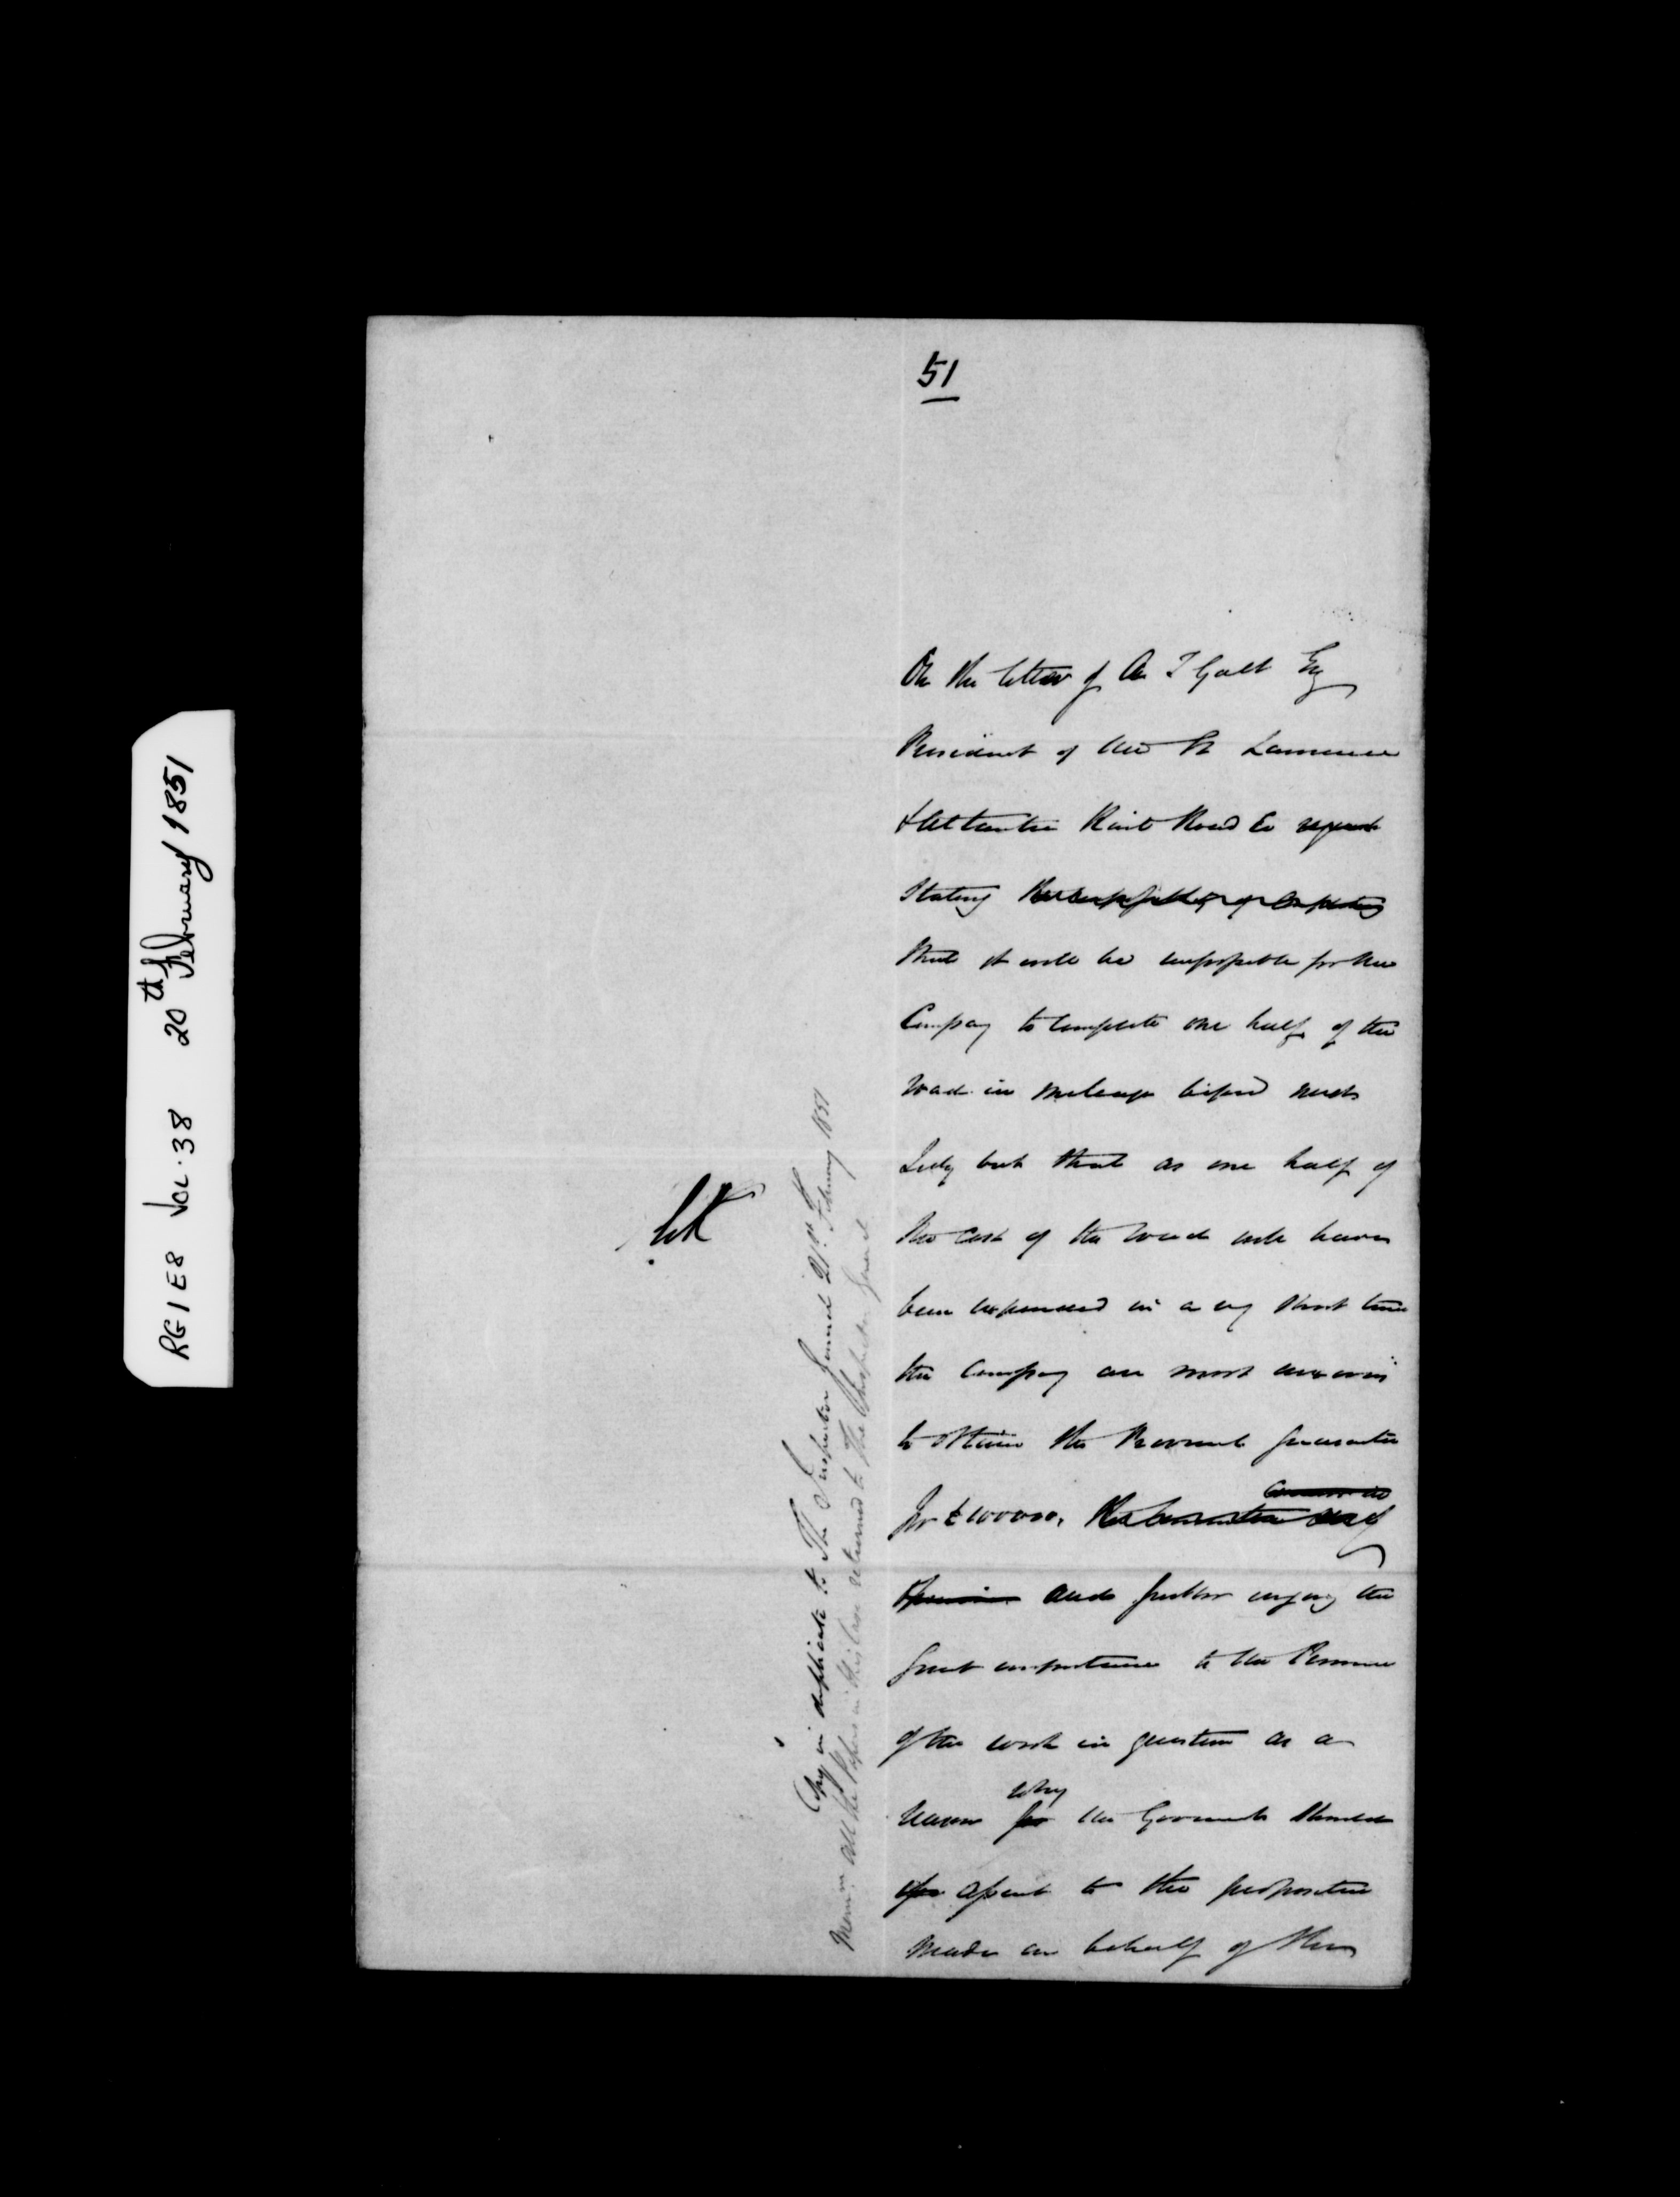 51
On the letter of A T Galt Esq
President of the St Lawrence
& Atlantic Rail Road Co
stating
that it will be impossible for the
Company to complete one half of the
road in mileage before next
July but that as one half of
the cost of the road will have
been expended in a very short time
the Company are most anxious
to obtain the Provincial guarantee
for £100000.
and further urging the
great importance to the Province
of the work in question as a
reason why the Government should
assent to the proposition
made on behalf of the
Copy in duplicate to The Inspector General 21st February 1851
Memm. All the Papers in this Case returned to The Inspector General
RG1E8 VOL. 38 20th February 1851